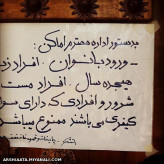 بدستور اداره محترم اماکن:
- ورود بانوان - افراد زیر
هیجده سال - افراد مست
شرور و افرادی که دارای سوء
کیفری می باشند ممنوع میباشد
ARSHIAATA.MIYANALI.COM